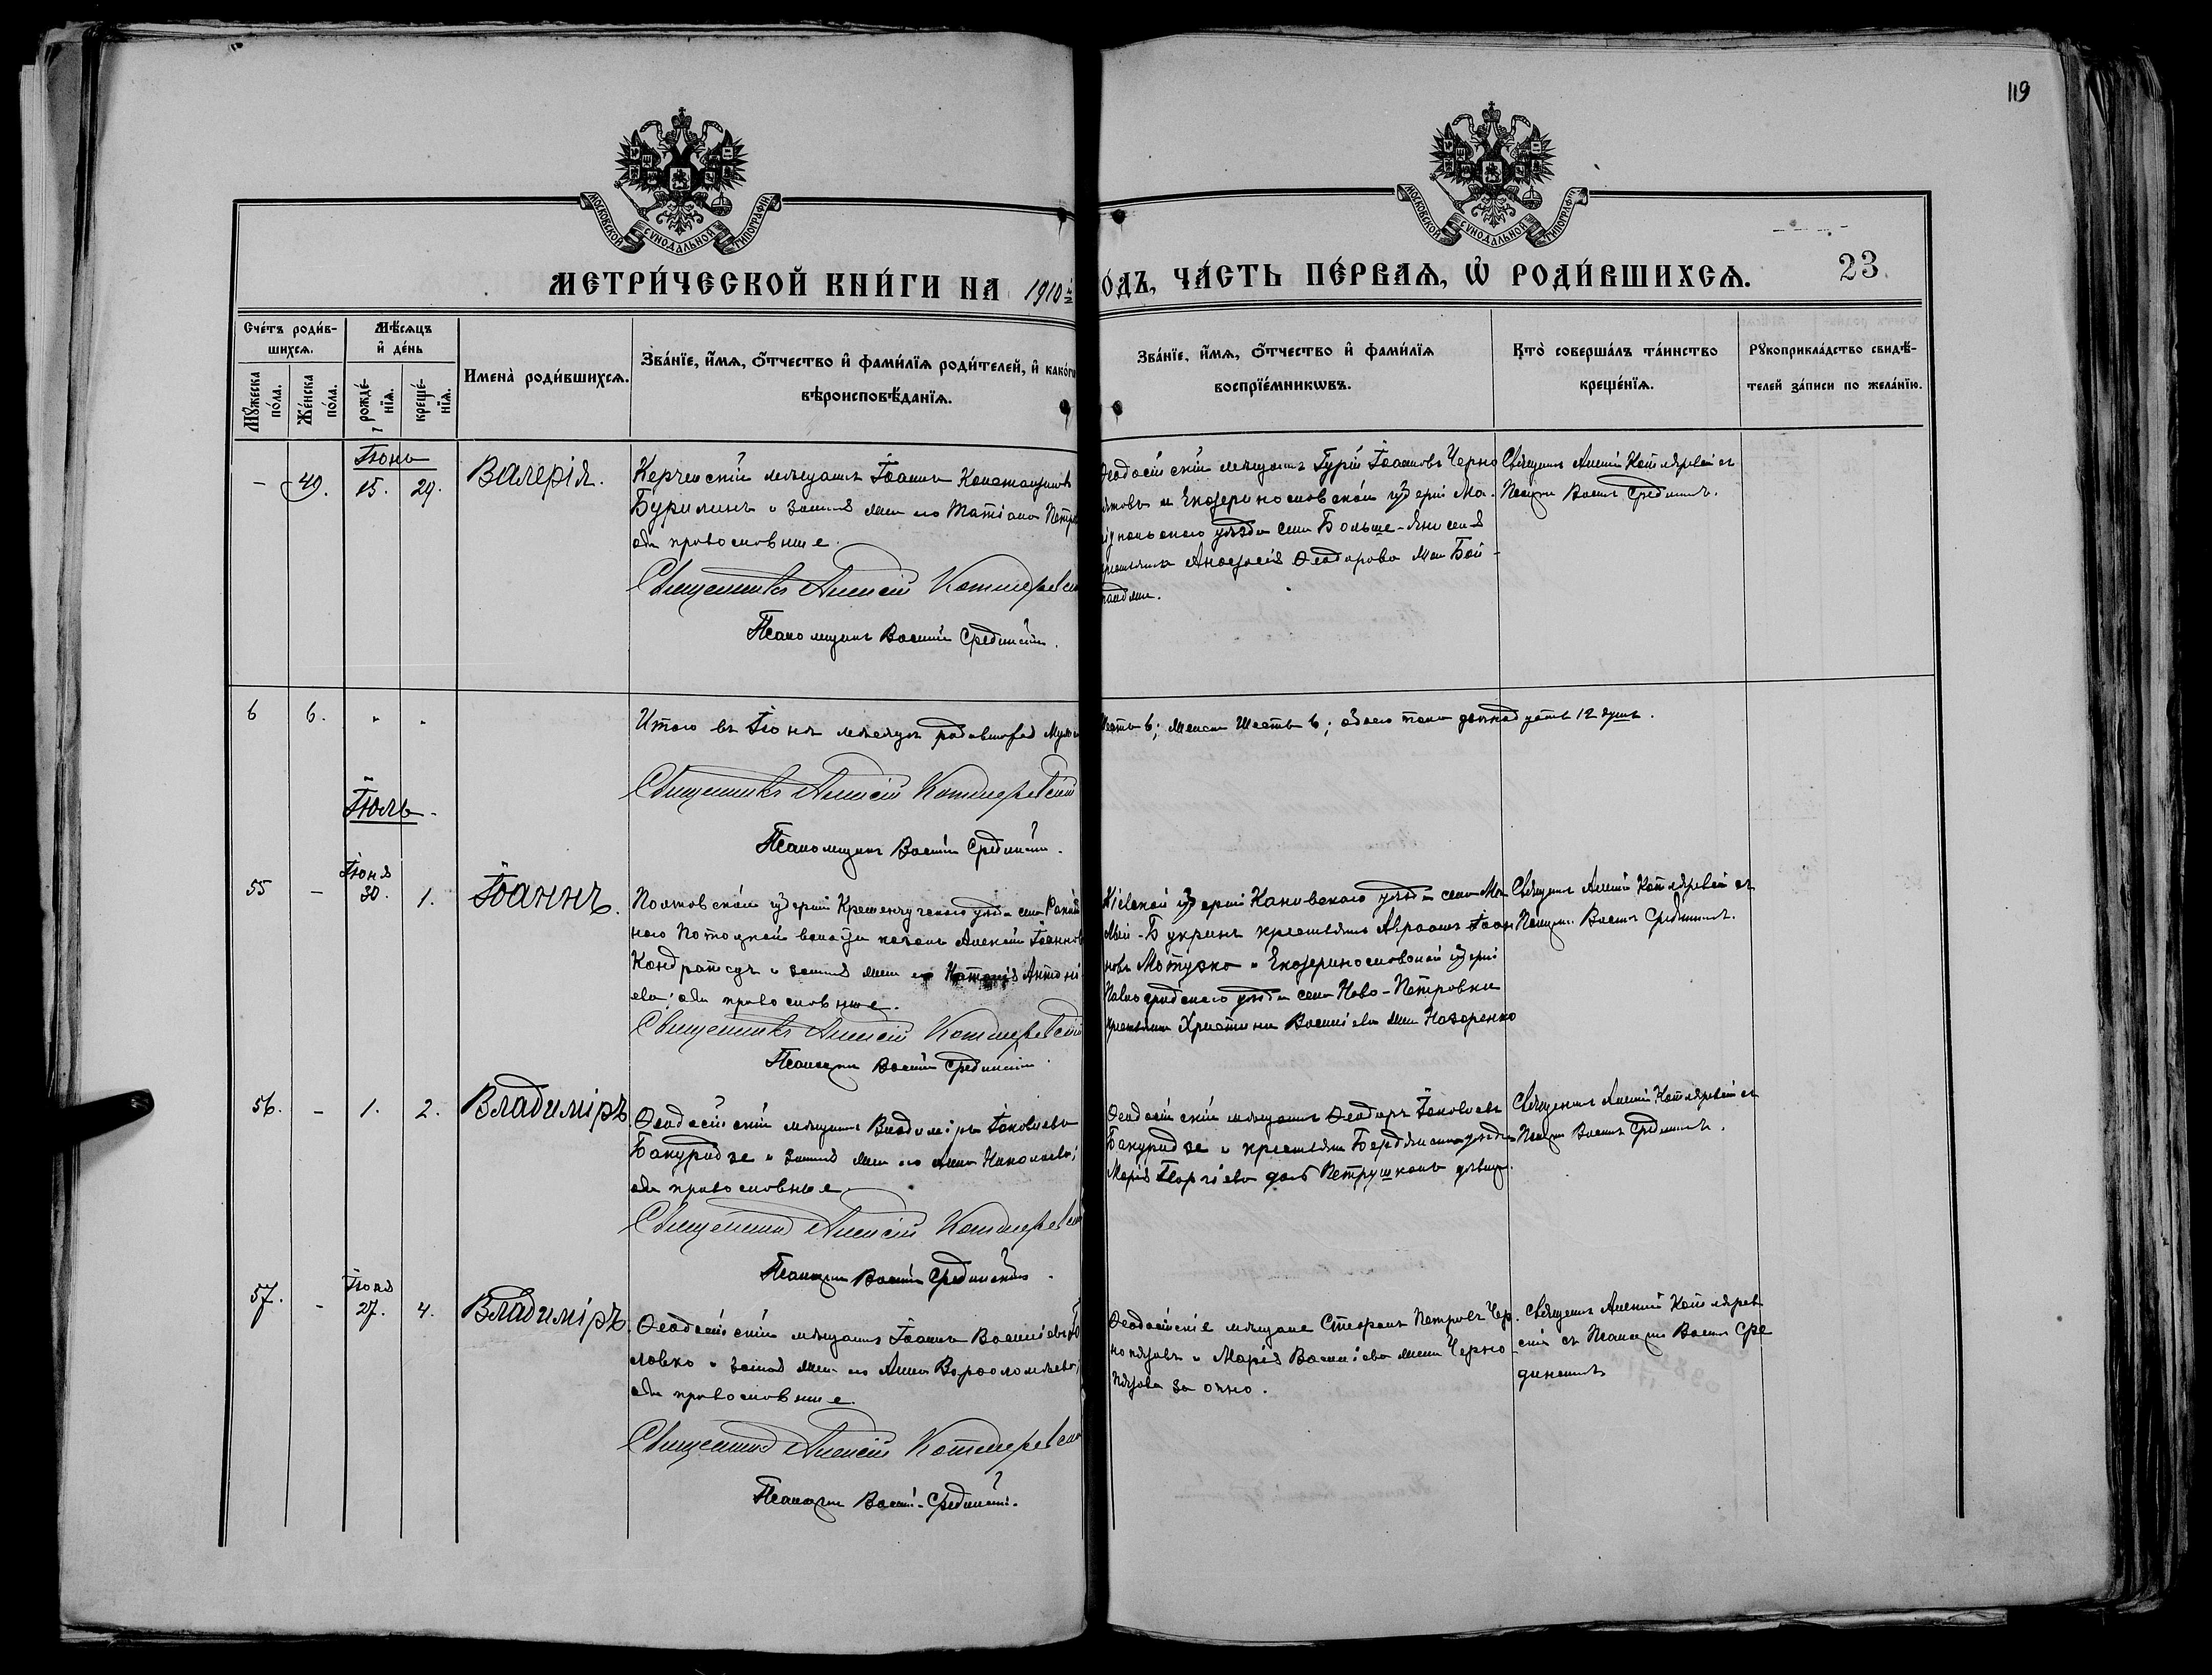 119
МОСКОВСКОЙ СѴНОДАЛЬНОЙ ТИПОГРАФІИ
МОСКОВСКОЙ СѴНОДАЛЬНОЙ ТИПОГРАФІИ
МЕТРИ́ЧЕСКОЙ КНИ́ГИ НА 1910 й
О́ДЪ, ЧА́СТЬ ПЕ́РВАѦ, Ѡ҆ РОДИ́ВШИХСѦ.
23
Сче́тъ роди́в-
шихсѧ.
Мѣ́сѧцъ
и҆ де́нь
Имена̀ роди́вшихсѧ.
Зва́нїе, и҆́мѧ, ѻ҆́тчество и҆ фами́лїѧ роди́телей, и҆ како́гѡ
вѣроисповѣ́данїѧ.
Зва́нїе, и҆́мѧ, ѻ҆́тчество и҆ фами́лїѧ
воспрїе́мникѡвъ.
Кто̀ соверша́лъ та́инство
креще́нїѧ.
Рꙋкоприкла́дство свидѣ́-
телей за́писи по жела́нїю.
Мꙋ́жеска
по́ла.
Же́нска
по́ла.
рожде́-
нїѧ.
креще́-
нїѧ.
Іюнь
- 49. 15. 29. Валерія.
Керченскій мѣщанинъ Іоаннъ Константиновъ
Бурилинъ и законная жена его Татіана Петр
оба православные.
Священникъ Алексій Котляревскій
Псаломщикъ Василій Срединскій.
Ѳеодосійскій мѣщанинъ Гурій Іоанновъ Черно
и Екатеринославской губерніи Ма-
ріупольскаго уѣзда села Больше-Янисоля
крестьянка Анастасія Ѳеодорова Бой-
Священникъ Алексій Котляревскій съ
Псаломщ. Васил. Срединскимъ.
6 6. " "
Итого въ Іюнѣ мѣсяцѣ родившихся мужска
шесть 6; женска шесть 6; обоего пола двѣнадцать 12 душъ.
Священникъ Алексій Котляревскій
Псаломщикъ Василій Срединскій.
Іюль.
Іюня
55 - 30. 1. Іоаннъ.
Полтавской губерніи Кременчугскаго уѣзда села
Потоцкой волости казакъ Алексій Іоанновъ
Кондратецъ и законная жена его Наталія Антоні
ева; оба православные.
Священникъ Алексій Котляревскій
Псаломщикъ Василій Срединскій
Кіевской губерніи Каневскаго уѣзда села Ма
лый-Букринъ крестьянинъ Авраамъ Іоан
новъ Мотузко и Екатеринославской губерніи
Павлоградскаго уѣзда села Ново-Петровки
крестьянка Христина Василіева Назаренко
Священникъ Алексій Котляревскій съ
Псаломщ. Васил. Срединскимъ.
56. - 1. 2. Владиміръ
Ѳеодосійскій мѣщанинъ Владиміръ Іаковлевъ
Бакурадзе и законная жена его Анна Николаева;
оба православные.
Священникъ Алексій Котляревскій
Псаломщикъ Василій Срединскій.
Ѳеодосійскій мѣщанинъ Ѳеодоръ Іаковлевъ
Бакурадзе и крестьянка Бердянскаго уѣзда
Марія Георгіева дочь Петрушкова дѣвица.
Священникъ Алексій Котляревскій съ
Псаломщ. Васил. Срединскимъ.
Іюня
57. - 27. 4. Владиміръ.
Ѳеодосійскій мѣщанинъ Іоаннъ Василіевъ
ловко и законная жена его Анна Варѳоломѣева;
оба православные.
Священникъ Алексій Котляревскій
Псаломщикъ Василій Срединскій.
Ѳеодосійскіе мѣщане Стефанъ Петровъ Чер-
и Марія Василіева Черно-
заочно.
Священникъ Алексій Котлярев
скій съ Псаломщ. Васил. Сре
динскимъ